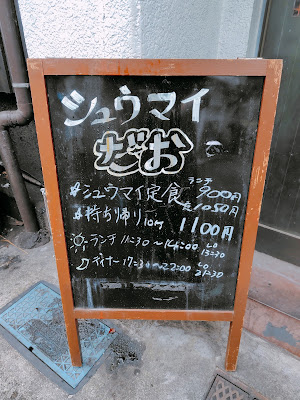 シュウマイ
だお
#シュウマイ定食 ランチ 900円
1050円
#持ち帰り 10ケ 1100円
ランチ 11:30〜14:00 LO 13:30
ディナー 17:30〜22:00 LO 21:30